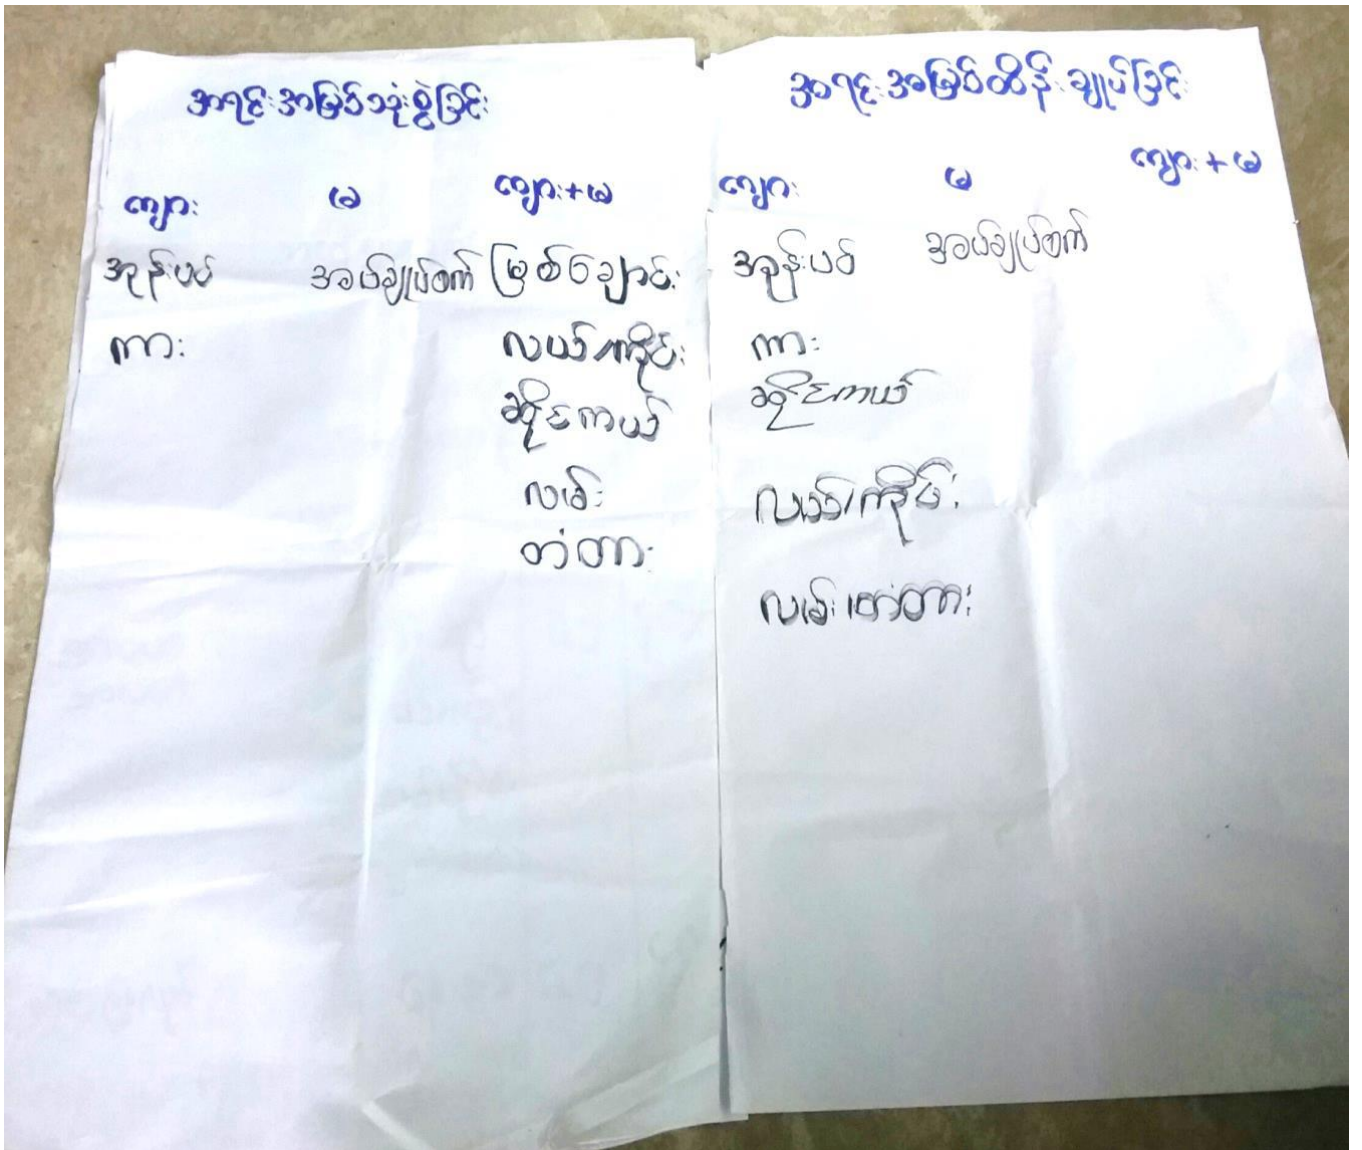 အရင်းအမြစ်သုံးစွဲခြင်း
ကျား မ ကျား+မ
အုန်းပင် အပ်ချုပ်စက် မြစ်ချောင်း
ကား လယ်/ကိုင်း
ဆိုင်ကယ်
လမ်း
တံတား
အရင်းအမြစ်ထိန်းချုပ်ခြင်း
ကျား မ ကျား+မ
အုန်းပင် အပ်ချုပ်စက်
ကား
ဆိုင်ကယ်
လယ်/ကိုင်း
လမ်း၊တံတား